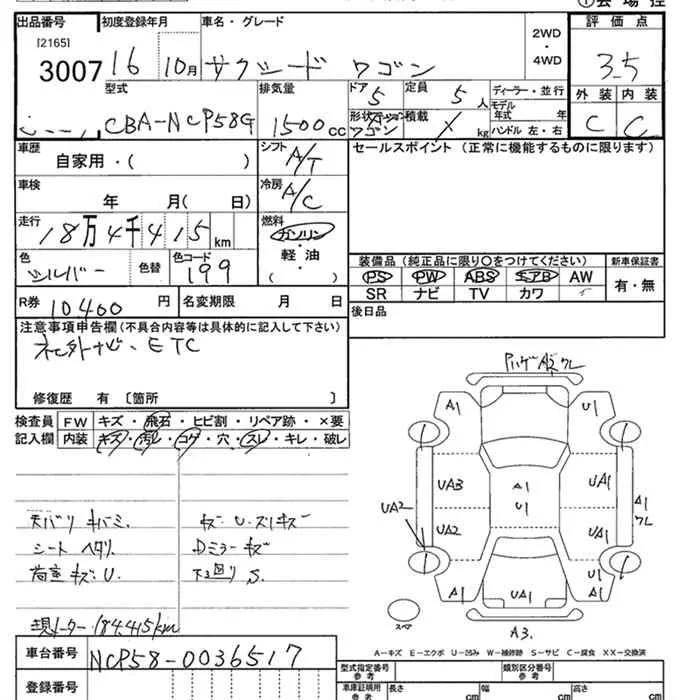 ①会場控
出品番号 初度登録年月 車名・グレード 2WD・4WD 評価点
[2165]
3007 16 10月 サクシード ワゴン 3.5
型式 排気量 ドア 定員 ディーラー・並行 外装 内装
CBA-NCP58G 1500cc 5 5人 モデル年式 年 C C
形状 ワゴン 積載 kg ハンドル 左・右
車歴 自家用・( ) シフト A/T セールスポイント (正常に機能するものに限ります)
車検 年 月( 日) 冷房 A/C
走行 18万4千415km 燃料 ガソリン・軽油・( )
色 シルバー 色替 色コード 199
装備品(純正品に限り○をつけてください) 新車保証書
PS PW ABS エアB AW 有・無
SR ナビ TV カワ
R券 10400円 名変期限 月 日 後日品
注意事項申告欄(不具合内容等は具体的に記入して下さい)
社外ナビ、ETC
修復歴 有 〔箇所 〕
検査員記入欄 FW キズ・飛石・ヒビ割・リペア跡・×要
内装 キズ・汚レ・コゲ・穴・スレ・キレ・破レ
天バリ キバミ
シート ヘタリ
荷室 キズ・U
キズ・U・スリキズ
Dミラー キズ
下回り S
現メーター184,415km
A2 ワレ
A1 U1
UA3 A1 U1 UA1
UA2 UA2 UA1 A1 ワレ
A1 UA1 U1 A1
スペア A3
A-キズ E-エクボ U-凹み W-補修跡 S-サビ C-腐食 XX-交換済
車台番号 NCP58-0036517
登録番号
型式指定番号 参考 類別区分番号 参考
車庫証明用 参考 長さ cm 幅 cm 高さ cm